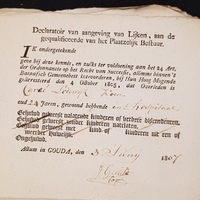 Declaratoir van aangeving van Lijken, aan de
gequalificeerde van het Plaatzelijk Bestuur.
IK ondergetekende
geve bij deze kennis, en zucks ter voldoening aan het 24 Art.
der Ordonnantie op het Recht van Successie, alomme binnen't
Bataafsch Gemeenebest te verwerven, bij Hun Hoog Mogende
gearresteerd den 4 October 1805, dat Overleden is
Carel Lodewijk
oud 24 Jaren, gewoond hebbende in 't Hospitaal
Gehuwd geweest nalatende kinderen of verdere bijzonderheden.
Gehuwd geweest zonder kinderen natelaten.
Gehuwd geweest met kind of kinderen uit een of
meer Huwelijk
Ongehuwd.
Aldum in GOUDA, den 3 Juny 1807